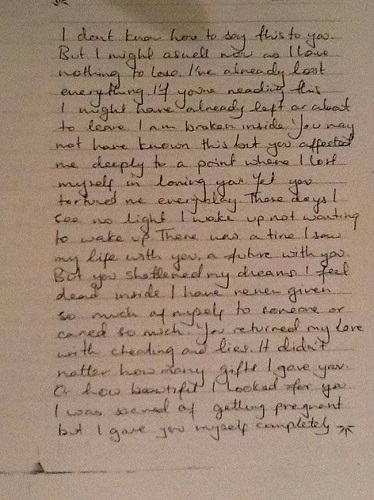 I dont know how to say this to you.
But I might aswell now as I have
nothing to lose. I've already lost
everything. If you're reading this
I might have already left or about
to leave. I am broken inside. You may
not have known this but you affected
me deeply to a point where I lost
myself in loving you. Yet you
tortured me everyday. These days I
see no light I wake up not wanting
to wake up. There was a time I saw
my life with you, a future with you.
But you shattered my dreams. I feel
dead inside. I have never given
so much of myself to someone or
cared so much. You returned my love
with cheating and lies. It didn't
matter how many gifts I gave you.
Or how beautiful I looked for you.
I was scared of getting pregnant
but I gave you myself completely